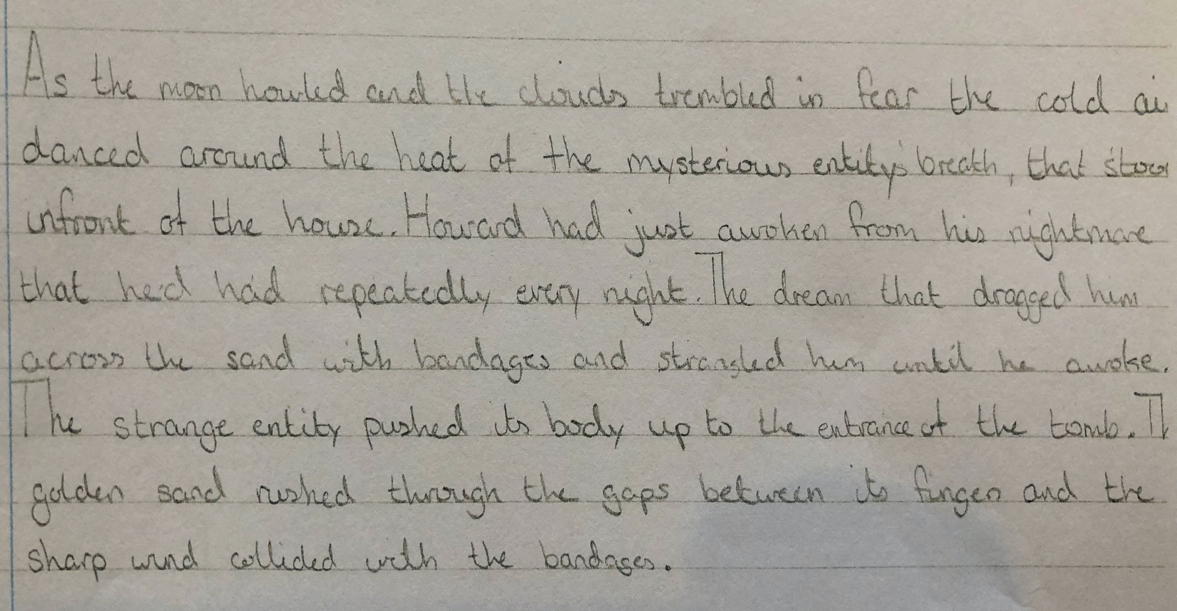 As the moon howled and the clouds trembled in fear the cold ai
danced around the heat of the mysterious entity's breath, that stood
infront of the house. Howard had just awoken from his nightmare
that he'd had repeatedly every night. The dream that dragged him
across the sand with bandages and strangled him until he awoke.
The strange entity pushed its body up to the entrance of the tomb. Th
golden sand rushed through the gaps between its fingers and the
sharp wind collided with the bandages.